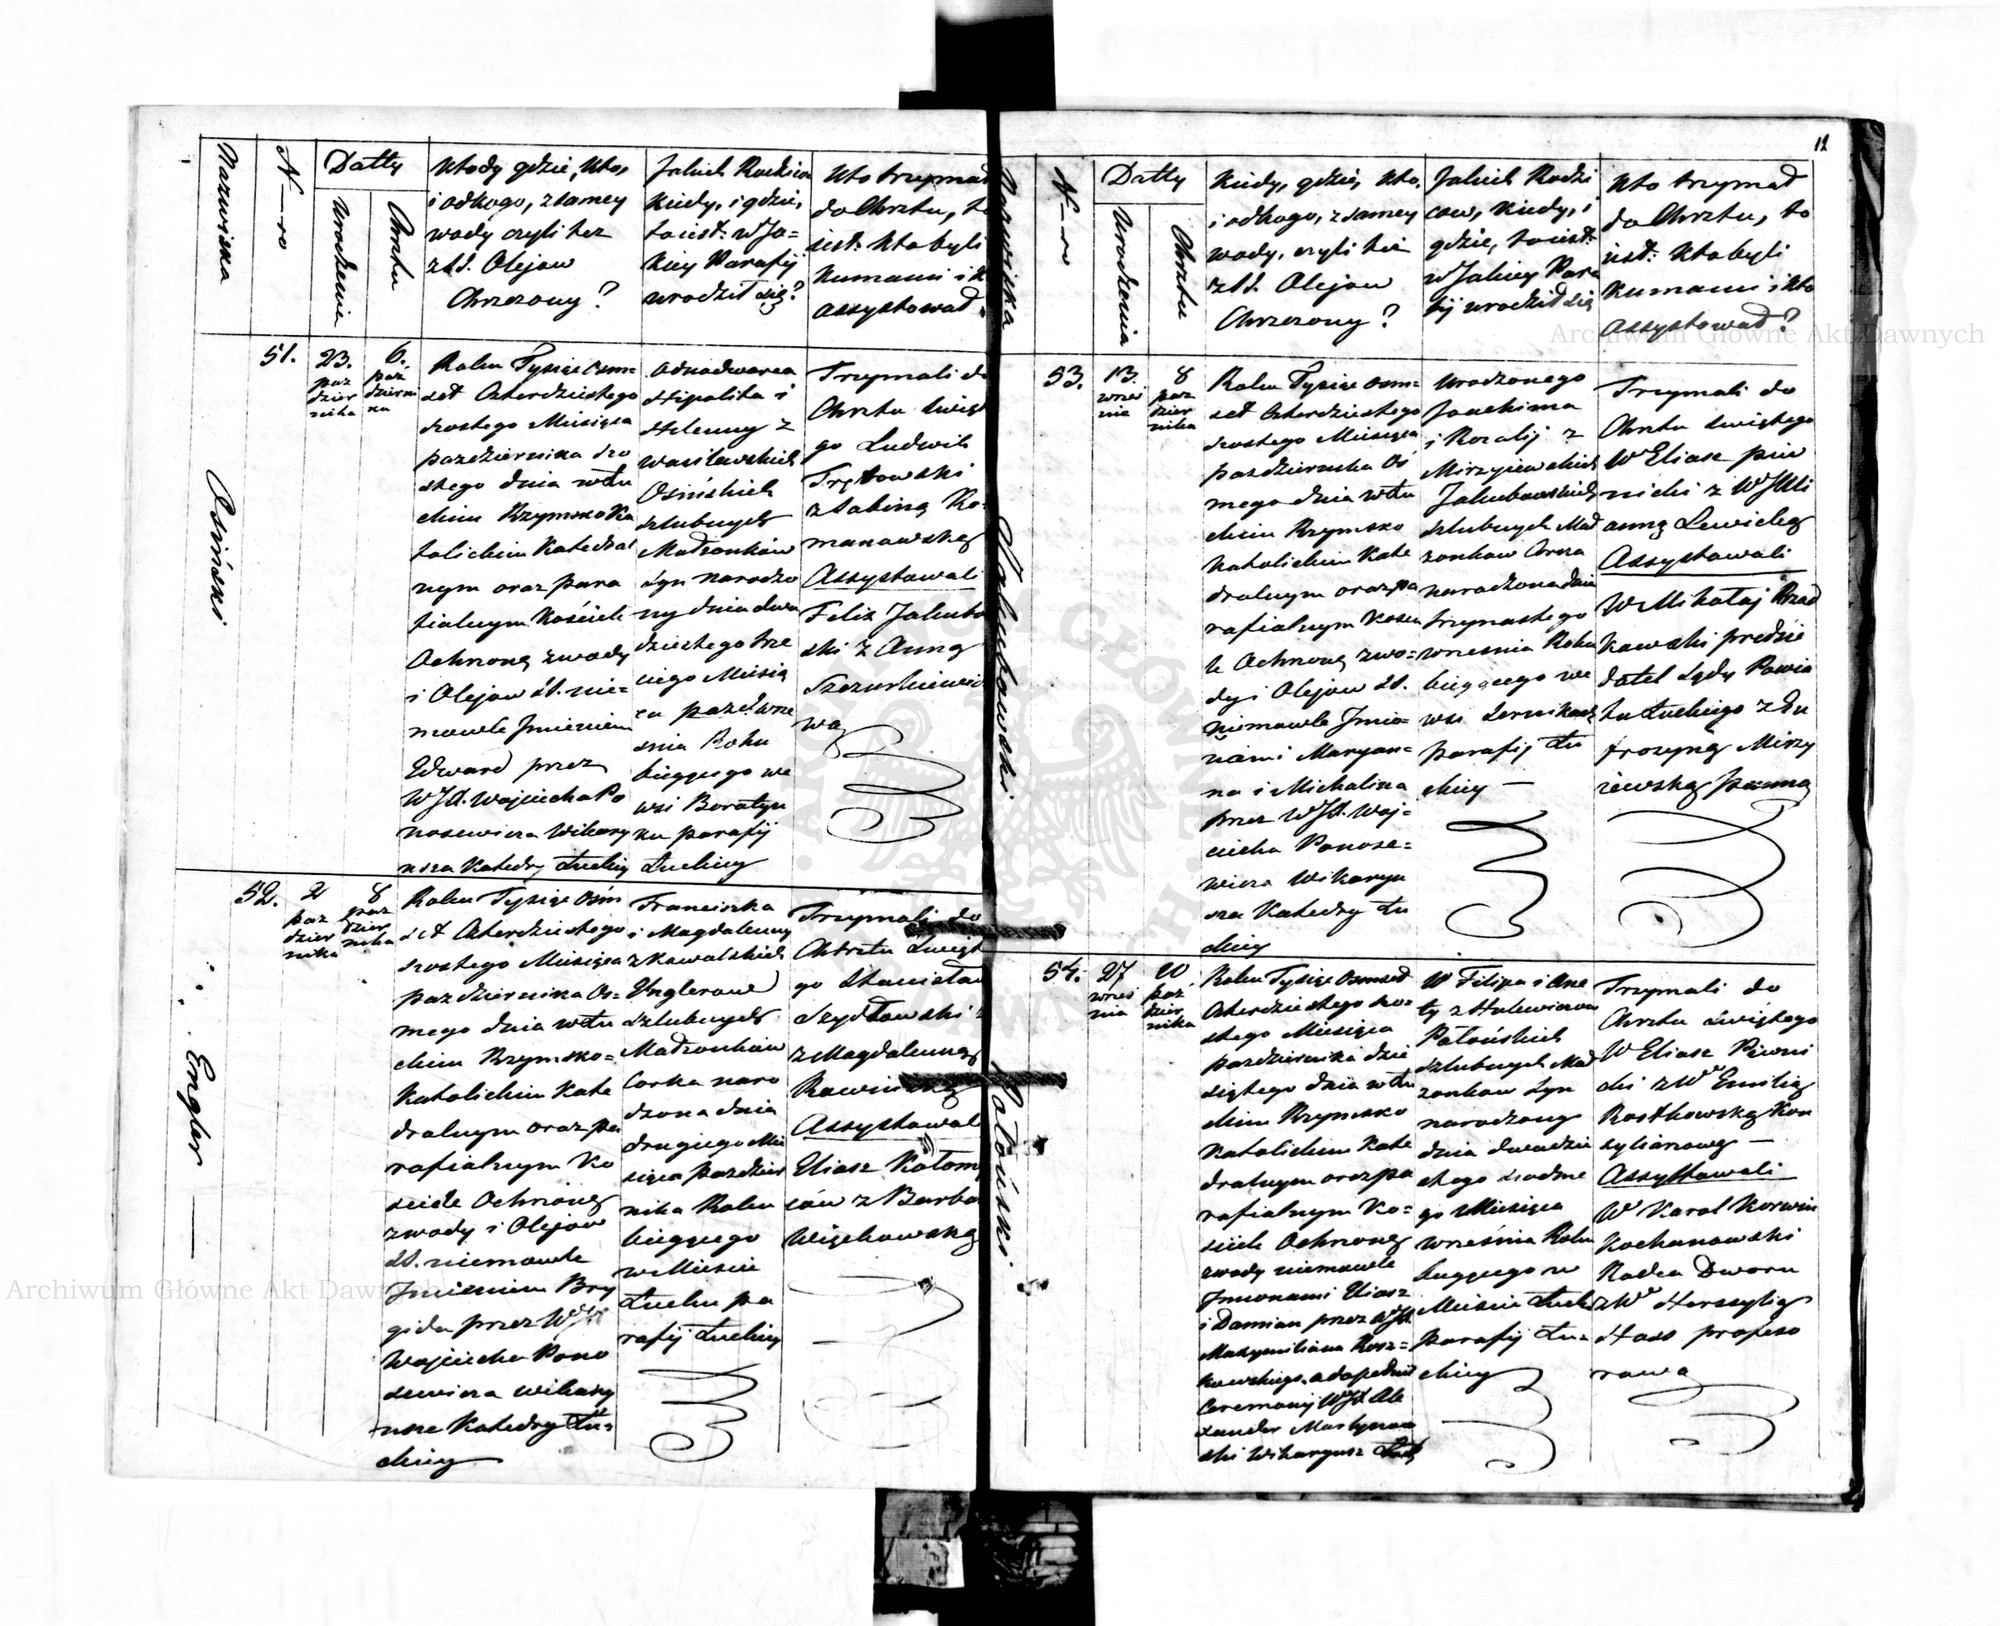 Nazwiska
N-ro
Datty
Urodzenia
Chrztu
Kiedy gdzie, kto,
i od kogo, z samey
wody czyli też
z SS. Olejow
Chrzczony?
Jakich Rodziców
Kiedy, i gdzie,
to iest: w Ja=
kiey Parafij
urodził się?
Kto trzymał
do Chrztu, to
iest: kto byli
Kumami i k
assystował.
Osiński
51.
23.
paz
dzier
nika
6.
paz
dzierni
ka
Roku Tysiąc Osm=
set Czterdziestego
szostego Miesiąca
pazdziernika szo
stego dnia w Łu
ckim Rzymsko Ka
tolickim Katedral
nym oraz para
fialnym Kościele
Ochrzoną z wody
i Olejow SS. nie=
mowle Jmieniem
Edward przez
WJX. Wojciecha Po
nosewicza Wikary
usza Katedry Łuckiey
odnodworca
Hipolita i
Helenny z
Wasilewskich
Osińskich
szlubnych
Małżonków
syn narodzo
ny dnia dwu
dziestego trze
ciego Miesią
ca pazdzier
dnia Roku
biegącego we
wsi Boratyn
ku parafij
Łuckiey
Trzymali do
Chrztu świąt
go Ludwik
Trętowski
z Sabiną Ro=
manowską
Assystowali
Felix Jakubo
ski z Anną
Szczurkiewic
wą
Engler
52.
2
paz
dzier
nika
8
paz
dzier
nika
Roku Tysiąc Osm
set Czterdziestego
szostego Miesiąca
pazdziernika Os=
mego dnia w Łu
ckim Rzymsko=
Katolickim Kate
dralnym oraz pa
rafialnym Ko
sciele Ochrzoną
z wody i Olejow
SS. niemowle
Jmieniem Bry
gida przez WJX
Wojciecha Pono
sewicza Wikary
usza Katedry Łu=
ckiey
Franciszka
i Magdalenny
z Kowalskich
Englerow
Szlubnych
Małżonków
Corka naro
dzona dnia
drugiego Mie
siąca Pazdzier
nika Roku
biegącego
w Mieście
Łucku pa
rafij Łuckiey
Trzymali do
Chrztu Święt
go Stanisław
Szydłowski
z Magdalenną
Rawińską
Assystowal
Eliasz Kołom
ców z Barba
Więckowską
12
Nazwiska
N-ro
Datty
Urodzenia
Chrztu
Kiedy, gdzie, kto,
i od kogo, z samey
wody, czyli też
z SS. Olejow
Chrzczony?
Jakich Rodzi
cow, Kiedy, i
gdzie, to iest:
w Jakiey Para
fij urodził się
Kto trzymał
do Chrztu, to
iest: kto byli
Kumami i kto
Assystował?
Jakubowski
53.
13.
wrześ
nia
8
paz
dzier
nika
Roku Tysiąc Osm=
set Czterdziestego
szostego Miesiąca
pazdziernika Os
mego dnia w Łu
ckim Rzymsko
Katolickim Kate
dralnym oraz pa
rafialnym Kosci
le Ochrzoną z wo=
dy i Olejow SS.
niemowle Jmio=
nami Maryan=
na i Michalina
przez WJX. Woj=
ciecha Ponose=
wicza Wikaryu
sza Katedry Łu
ckiey
Urodzonego
Joachima
i Rozalij z
Mirzyiewskich
Jakubowskich
szlubnych Mał
żonkow Corca
narodzona dnia
trzynastego
września Roku
biegącego we
wsi Sernikach
parafij Łu
ckiey
Trzymali do
Chrztu Świętego
W Eliasz piw
nicki z W Juli
anną Lewicką
Assystowali
W Mikołaj Rzad
kowski prezie
datel Sądu Powia
tu Łuckiego z Eu
frozyną Mirzy
iewską panną
Połoński
54.
27
wrześ
nia
20
paz
dzier
nika
Roku Tysiąc Osmset
Czterdziestego szo=
stego Miesiąca
pazdziernika dzie
siątego dnia w Łu
ckim Rzymsko
Katolickim Kate
dralnym oraz pa
rafialnym Ko=
sciele Ochrzoną
z wody niemowle
Jmionami Eliasz
i Damian przez WJX.
Maxymiliana Rosz=
kowskiego. a dopełnił
Ceremonij WJX Ale
xander Martynow
ski Wikaryusz Łuck
W Filipa i Ane
ty z Hulewiczow
Połońskich
szlubnych Mał
żonkow Syn
narodzony
dnia dwudzie
stego siodme
go Miesiąca
września Roku
biegącego w
Mieście Łucku
parafij Łu=
ckiey
Trzymali do
Chrztu świętego
W Eliasz Piwni
cki z Wą Emilią
Rostkowską Kon
syliarową
Assystowali
W Karol Korwin
Kochanowski
Radca Dworu
z Wą Herssylią
Hass profeso
rową
Archiwum Główne Akt Dawnych
Archiwum Główne Akt Dawnych